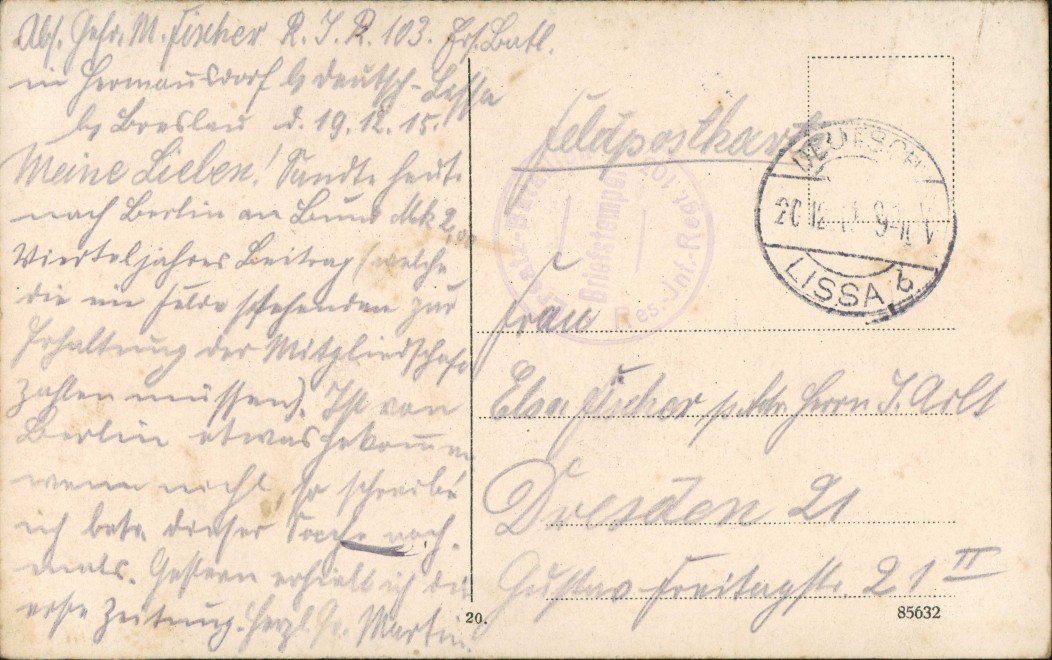 Abs. Gefr. M. Fischer R. I. R. 103. Ers. Batl.
in Hermannsdorf b/ Deutsch-Lissa
b/ Breslau d. 19.12.15.
Meine Lieben! Sandte heute
nach Berlin an Bund Mk 2,00
Vierteljahres Beitrag (welche
die im Felde stehenden zur
Erhaltung der Mitgliedschaft
zahlen müssen). Ist von
Berlin etwas gekommen
wenn nicht, so schreibe
ich betr. dieser Sache noch-
mals. Gestern erhielt ich die
erste Zeitung. Herzl. Gr. Martin.
Feldpostkarte
Ersatz-Bataillon
Briefstempel
Res.-Inf.-Regt. 103
DEUTSCH
LISSA b
Frau
Elsa Fischer, p. Adr. Herrn J. Arlt
Dresden 21
Gustav Freitagstr. 21 II
20.
85632